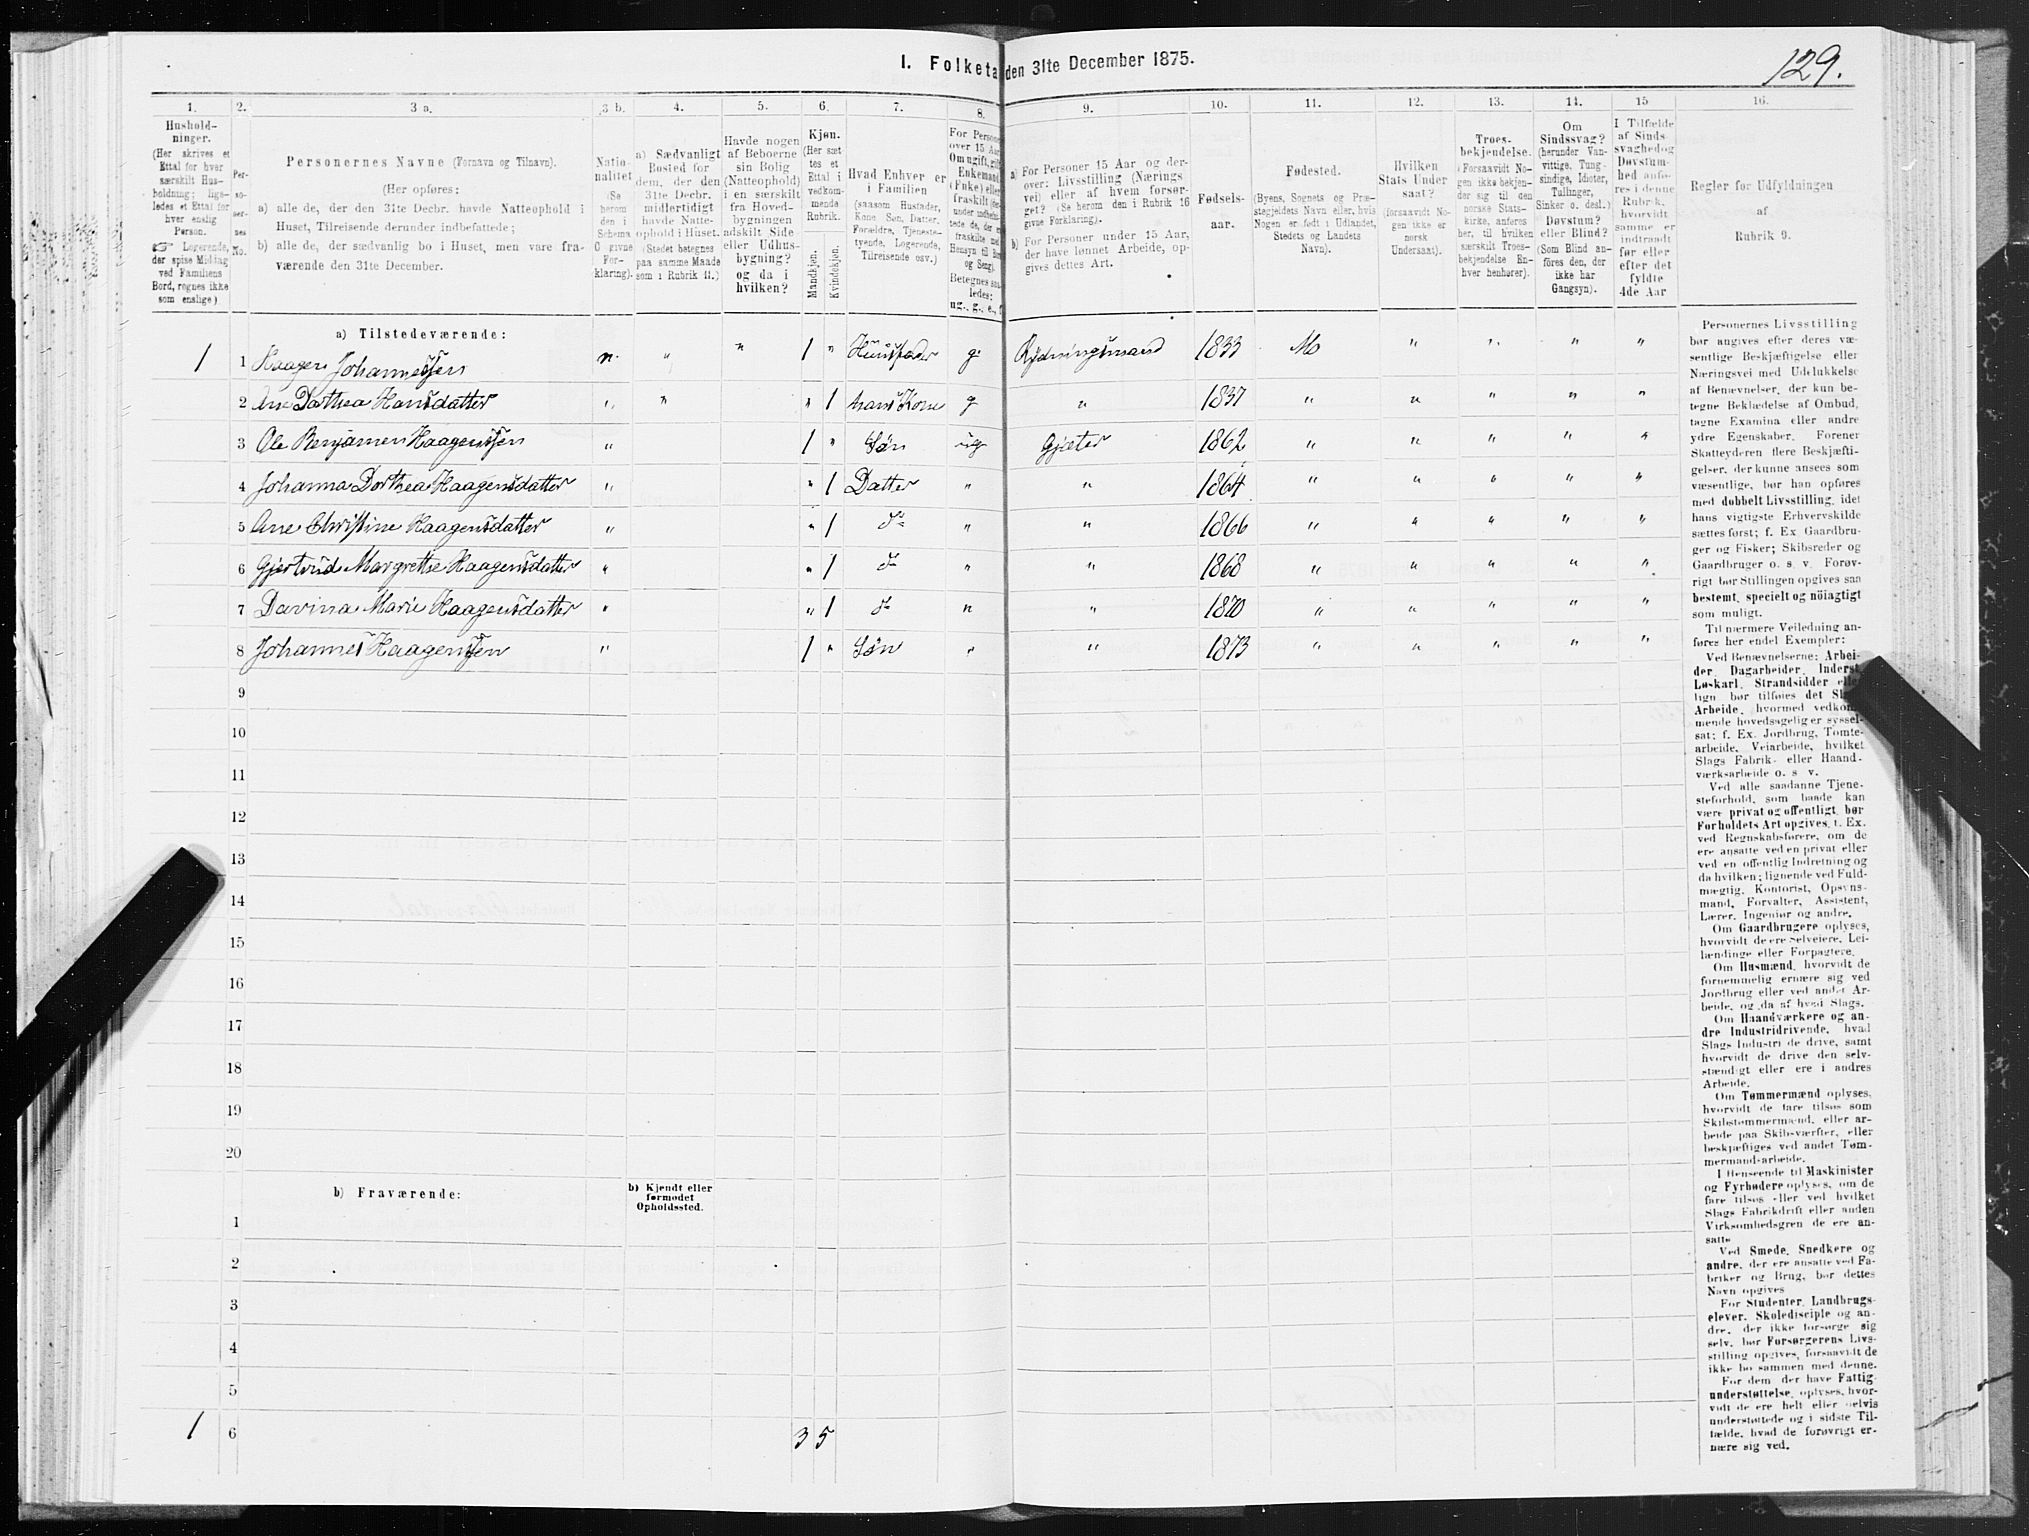 129.
I. Folketa den 31te December 1875.
1. 2. 3 a. 3 b. 4. 5. 6. 7. 8. 9. 10. 11. 12. 13. 14. 15 16.
Hushold-
ninger.
(Her skrives et
Ettal for hver
særskilt Hus-
holdning; lige-
ledes et Ettal for
hver enslig
Person.
☞ Logerende,
der spise Middag
ved Familiens
Bord, regnes ikke
som enslige)
Per-
so-
ner-
nes
No.
Personernes Navne (Fornavn og Tilnavn).
(Her opføres:
a) alle de, der den 31te Decbr. havde Natteophold i
Huset, Tilreisende derunder indbefattede;
b) alle de, der sædvanlig bo i Huset, men vare fra-
værende den 31te December.
Natio-
nalitet
(Se
herom
den i
Schema
O givne
For-
klaring).
a) Sædvanligt
Bosted for
dem, der den
31te Decbr.
midlertidigt
havde Natte-
ophold i Huset.
(Stedet betegnes
paa samme Maade
som i Rubrik 11.)
Havde nogen
af Beboerne
sin Bolig
(Natteophold)
i en særskilt
fra Hoved-
bygningen
adskilt Side
eller Udhus-
bygning?
og da i
hvilken?
Kjøn.
(Her sæt-
tes et
Ettal i
vedkom-
mende
Rubrik.
Mandkjøn.
Kvindekjøn.
Hvad Enhver er
i Familien
(saasom Husfader,
Kone Søn, Datter,
Forældre, Tjeneste-
tyende, Logerende,
Tilreisende osv.)
For Persone
over 15 Aar
Om ugift, gift
Enkemand
(Enke) eller
fraskilt
Betegnes saa-
ledes:
ug., g., e., f
a) For Personer 15 Aar og der-
over: Livsstilling (Nærings
vei) eller af hvem forsør-
get? (Se herom den i Rubrik 16
givne Forklaring).
b) For Personer under 15 Aar,
der have lønnet Arbeide, op-
gives dettes Art.
Fødsels-
aar.
Fødested.
(Byens, Sognets og Præ-
stegjeldets Navn eller, hvis
Nogen er født i Udlandet,
Stedets og Landets
Navn).
Hvilken
Stats Under
saat?
(forsaavidt No-
gen ikke er
norsk
Undersaat).
Troes-
bekjendelse.
(Forsaavidt No-
gen ikke bekjen-
der sig til den
norske Stats-
kirke, anføres
her, til hvilken
særskilt Troes-
bekjendelse En-
hver henhører).
Om
Sindssvag?
(herunder Van-
vittige, Tung-
sindige, Idioter,
Tullinger,
Sinker o. desl.)
Døvstum?
eller Blind?
(Som Blind an-
føres den, der
ikke har
Gangsyn).
I Tilfælde
af Sinds-
svaghed og
Døvstum-
hed anfø-
res i denne
Rubrik,
hvorvidt
samme er
indtraadt
før eller
efter det
fyldte
4de Aar
Regler for Udfyldningen
af
Rubrik 9.
a) Tilstedeværende:
1 1 Haagen Johannessen n. " " 1 " Husfader g. Rydningsmand 1833 Mo " " " "
2 Ane Dorthea Hansdatter " " " 1 hans Kone g " 1837 " " " " "
3 Ole Benjamen Haagenssen " 1 " Søn ug Gjæter 1862 " " " " "
4 Johanna Dorthea Haagensdatter " " 1 Datter " " 1864 " " " " "
5 Ane Christine Haagensdatter " " 1 do " " 1866 " " " " "
6 Gjertrud Margrethe Haagensdatter " " 1 do " " 1868 " " " " "
7 Davina Marie Haagensdatter " " 1 do " " 1870 " " " " "
8 Johannes Haagenssen " 1 " Søn " " 1873 " " " " "
9
10
11
12
13
14
15
16
17
18
19
20
b) Fraværende:
b) Kjendt eller
formodet
Opholdssted.
1
2
3
4
5
1 6 3 5
Personernes Livsstilling
bør angives efter deres væ-
sentlige Beskjæftigelse eller
Næringsvei med Udelukkelse
af Benævnelser, der kun be-
tegne Beklædelse af Ombud,
tagne Examina eller andre
ydre Egenskaber. Forener
Skatteyderen flere Beskjæfti-
gelser, der kunne ansees som
væsentlige, bør han opføres
med dobbelt Livsstilling, idet
hans vigtigste Erhvervskilde
sættes først; f. Ex Gaardbru-
ger og Fisker; Skibsreder og
Gaardbruger o. s. v. Forøv-
rigt bør Stillingen opgives saa
bestemt, specielt og nöiagtigt
som muligt.
Til nærmere Veiledning an-
føres her endel Exempler:
Ved Benævnelserne: Arbei-
der, Dagarbeider, Inderst,
Løskarl, Strandsidder eller
lign bør tilføies det Slags
Arbeide, hvormed vedkom-
mende hovedsagelig er syssel-
sat; f. Ex. Jordbrug, Tomte-
arbeide, Veiarbeide, hvilket
Slags Fabrik- eller Haand-
værksarbeide o. s v.
Ved alle saadanne Tjene-
steforhold, som baade kan
være privat og offentligt, bør
Forholdets Art opgives, t. Ex.
ved Regnskabsførere, om de
ere ansatte ved en privat eller
ved en offentlig Indretning og
da hvilken; lignende ved Fuld-
mægtig, Kontorist, Opsyns-
mand, Forvalter, Assistent,
Lærer, Ingeniør og andre.
Om Gaardbrugere oplyses,
hvorvidt de ere Selveiere, Lei-
lændinge eller Forpagtere.
Om Husmænd, hvorvidt de
fornemmelig ernære sig ved
Jordbrug eller ved andet Ar-
beide, og da af hvad Slags.
Om Haandværkere og an-
dre Industridrivende, hvad
Slags Industri de drive, samt
hvorvidt de drive den selv-
stændigt eller ere i andres
Arbeide.
Om Tømmermænd oplyses,
hvorvidt de fare tilsøs som
Skibstømmermænd, eller ar-
beide paa Skibsværfter, eller
beskjæftiges ved andet Tøm-
mermand-arbeide.
I Henseende til Maskinister
og Fyrbødere oplyses, om de
fare tilsøs eller ved hvilket
Slags Fabrikdrift eller anden
Virksomhedsgren de ere an-
satte
Ved Smede, Snedkere og
andre, der ere ansatte ved Fa-
briker og Brug, bør dettes
Navn opgives
For Studenter, Landbrugs-
elever, Skoledisciple og an-
dre, der ikke forsørge sig
selv, bør Forsørgerens Livs-
stilling opgives, forsaavidt de
ikke bo sammen med denne.
For dem der have Fattig-
understøttelse, oplyses, hvor-
vidt de ere helt eller delvis
understøttede og i sidste Til-
fælde, hvad de forøvrigt er-
nære sig ved.